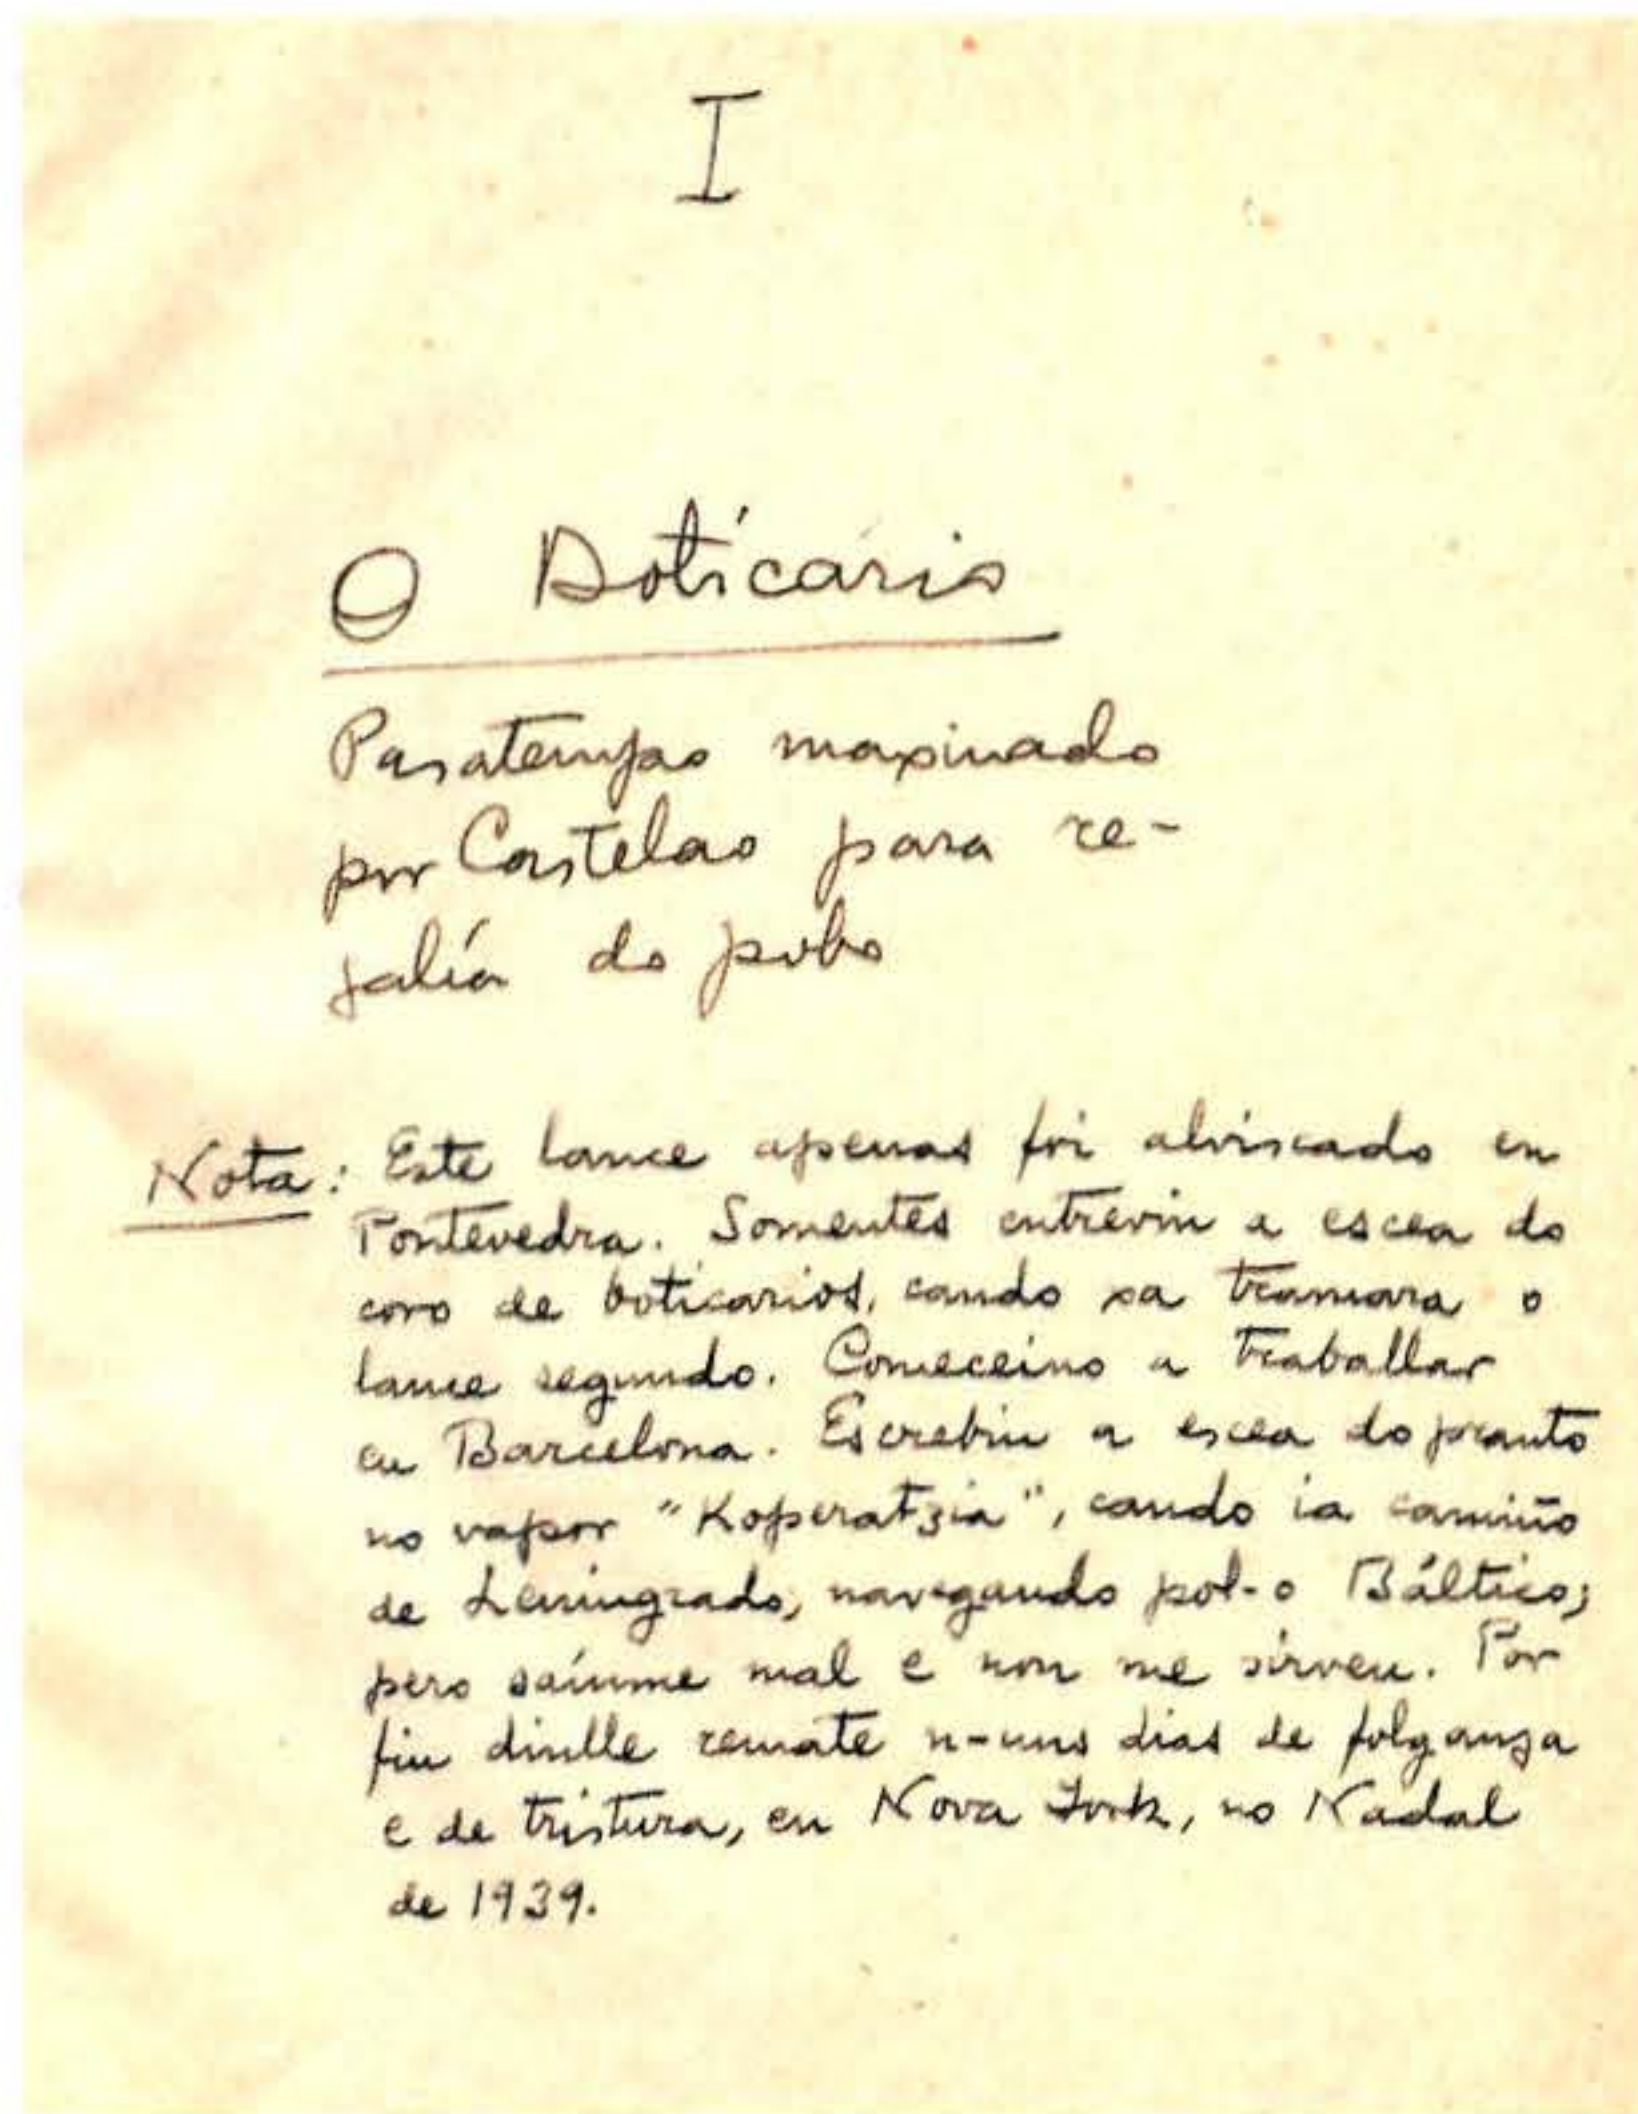 I
O Boticario
Pasatempo maxinado
por Castelao para re-
galía do pobo
Nota: Este lance apenas foi alviscado en
Pontevedra. Somentes entrevin a escea do
coro de boticarios, cando xa tramara o
lance segundo. Comeceino a traballar
en Barcelona. Escrebin a escea do pranto
no vapor "Koperatzia", cando ia camiño
de Leningrado, navegando pol-o Báltico;
pero saíume mal e non me sirveu. Por
fin dinlle remate n-uns dias de folganza
e de tristura, en Nova York, no Nadal
de 1939.